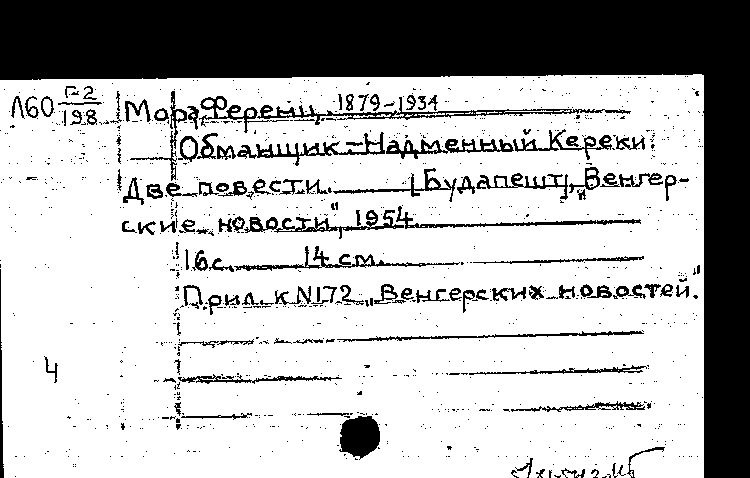 Л60 Г-2/198
Мора Ференц, 1879-1934
Обманщик.-Надменный Кереки.
Две повести. [Будапешт], „Венгер-
ские новости", 1954.
16 с. 14 см.
Прил. к N172 „Венгерских новостей."
4